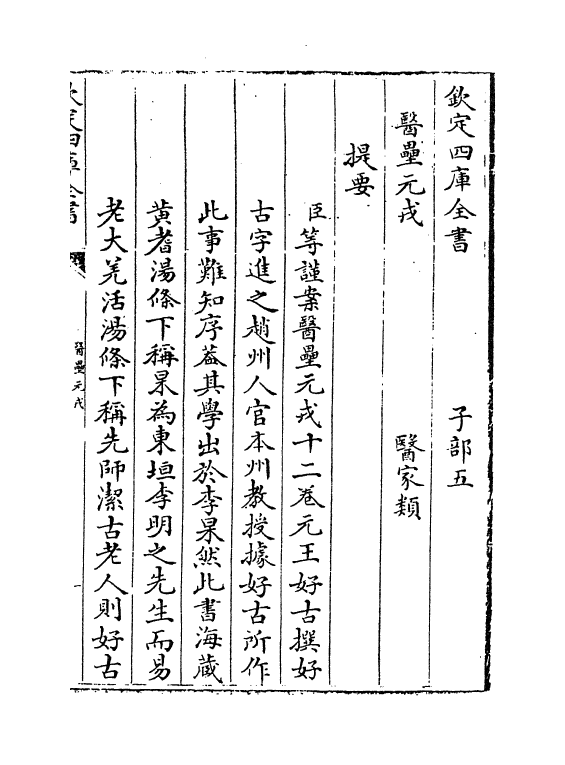 欽定四庫全書　子部五
醫壘元戎　醫家類
提要
臣等謹案醫壘元戎十二卷元王好古撰好
古字進之趙州人官本州教授據好古所作
此事難知序蓋其學出於李杲然此書海藏
黃耆湯條下稱杲為東垣李明之先生而易
老大羌活湯條下稱先師潔古老人則好古
欽定四庫全書
醫壘元戎
一